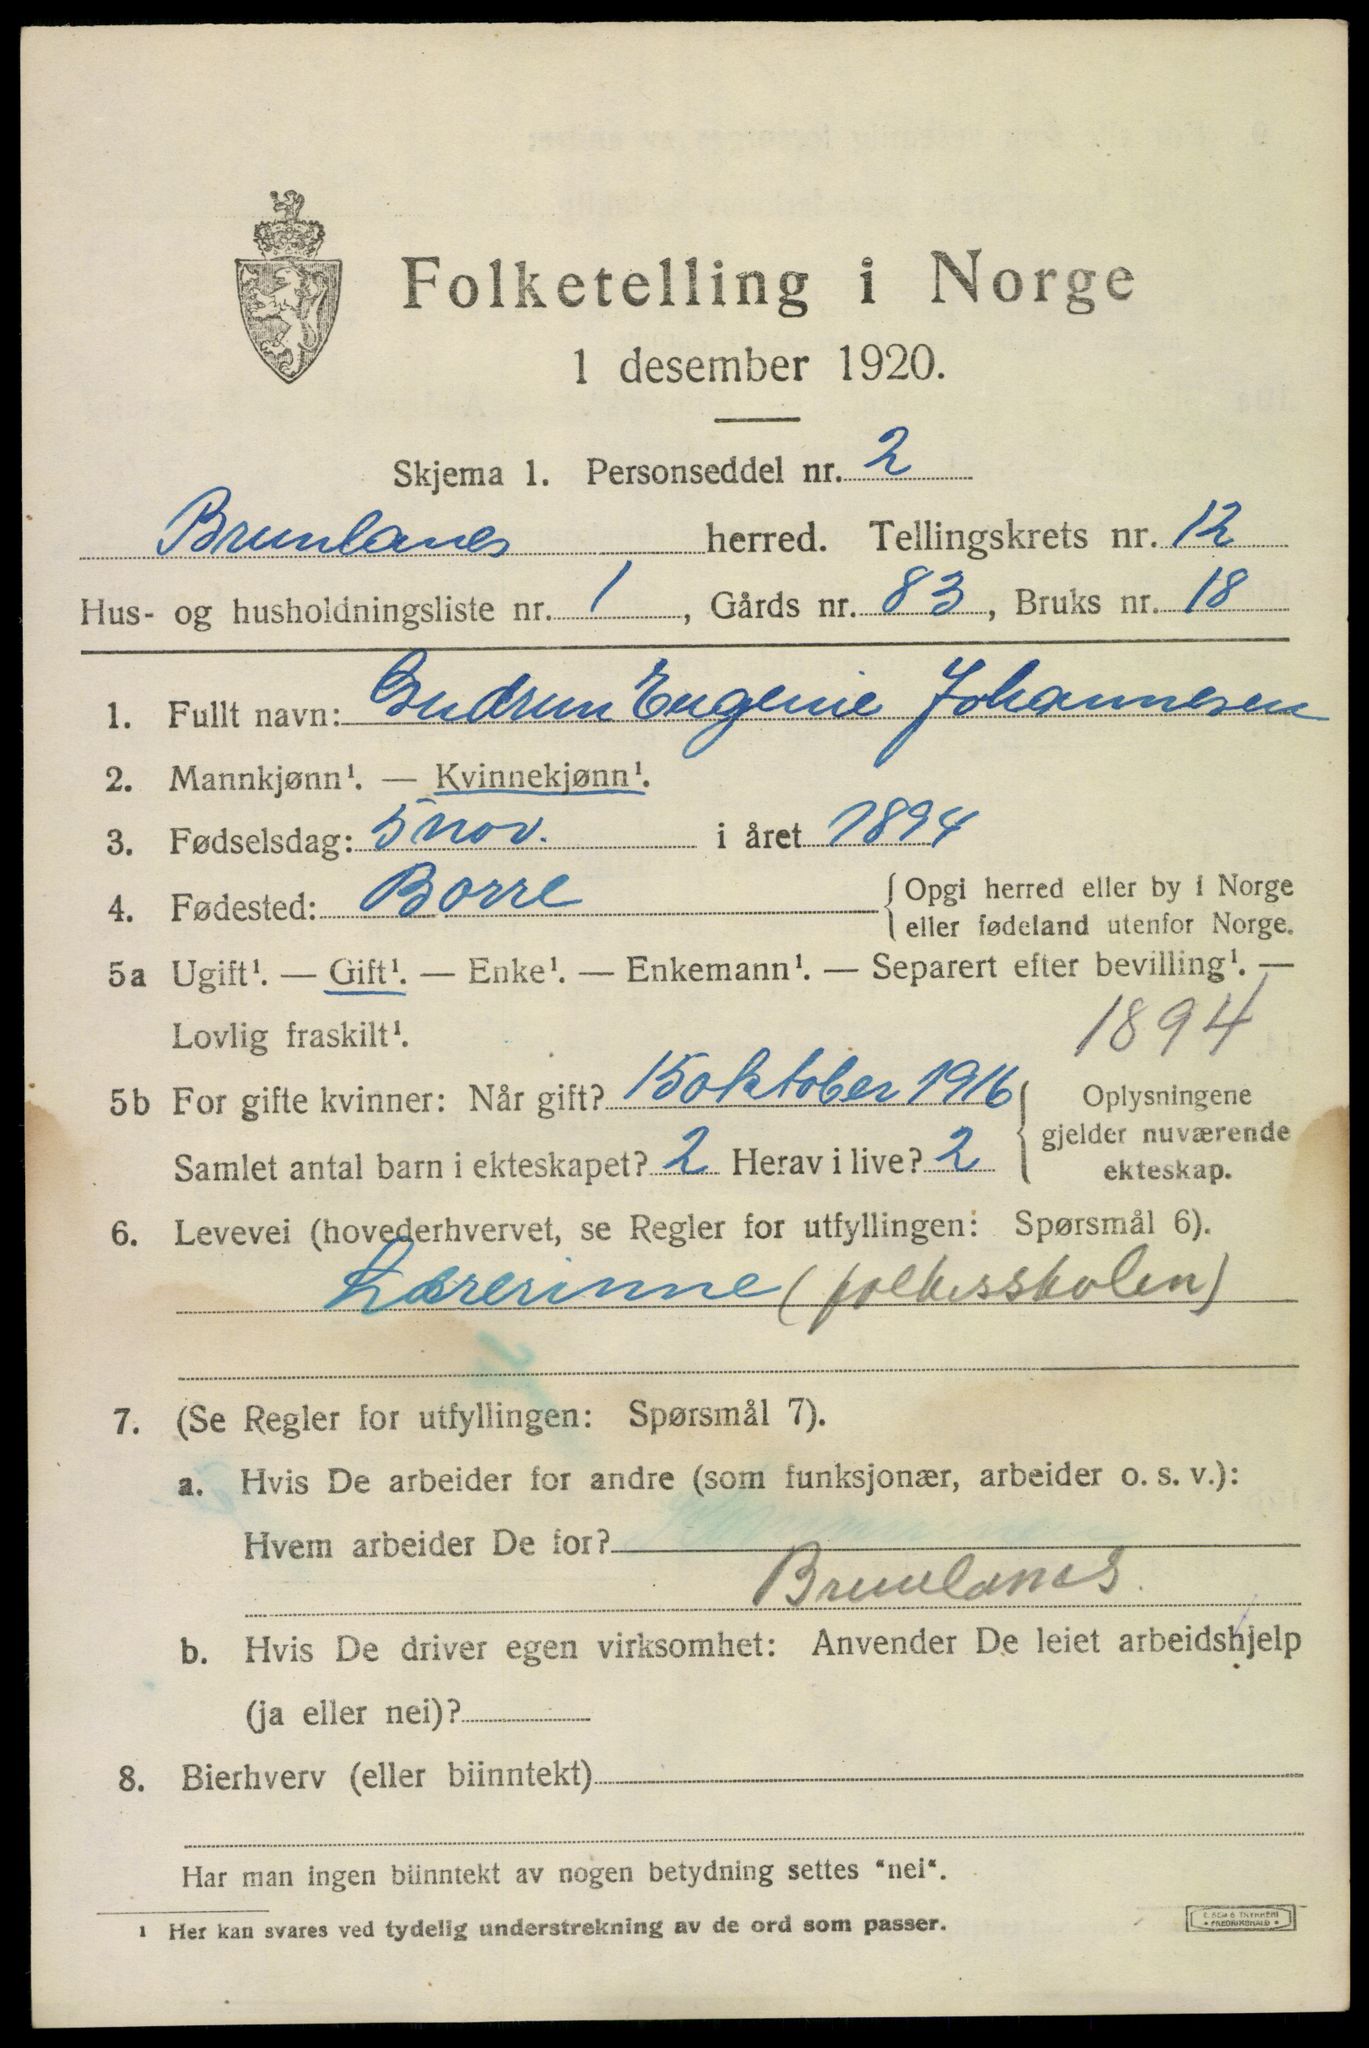 Folketelling i Norge
1 desember 1920.
Skjema 1. Personseddel nr. 2
Brunlanes herred. Tellingskrets nr. 12
Hus- og husholdningsliste nr. 1, Gårds nr. 83, Bruks nr. 18
1. Fullt navn: Gudrun Eugenie Johannesen
2. Mannkjønn¹. — Kvinnekjønn¹.
3. Fødselsdag: 5 nov. i året 1894
4. Fødested: Borre { Opgi herred eller by i Norge
eller fødeland utenfor Norge.
5a Ugift¹. — Gift¹. — Enke¹. — Enkemann¹. — Separert efter bevilling¹. —
Lovlig fraskilt¹. 1894
5b For gifte kvinner: Når gift? 15 oktober 1916 { Oplysningene
gjelder nuværende
Samlet antal barn i ekteskapet? 2 Herav i live? 2 ekteskap.
6. Levevei (hovederhvervet, se Regler for utfyllingen: Spørsmål 6).
Lærerinne (folkesskolen)
7. (Se Regler for utfyllingen: Spørsmål 7).
a. Hvis De arbeider for andre (som funksjonær, arbeider o. s. v.):
Hvem arbeider De for?
Brunlanes.
b. Hvis De driver egen virksomhet: Anvender De leiet arbeidshjelp
(ja eller nei)?
8. Bierhverv (eller biinntekt)
Har man ingen biinntekt av nogen betydning settes "nei".
¹ Her kan svares ved tydelig understrekning av de ord som passer.